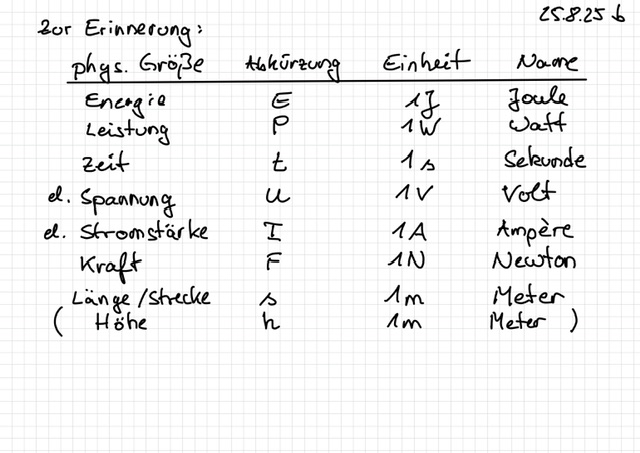 25.8.25 b
Zur Erinnerung:
phys. Größe Abkürzung Einheit Name
Energie E 1J Joule
Leistung P 1W Watt
Zeit t 1s Sekunde
el. Spannung U 1V Volt
el. Stromstärke I 1A Ampère
Kraft F 1N Newton
Länge/Strecke s 1m Meter
( Höhe h 1m Meter )